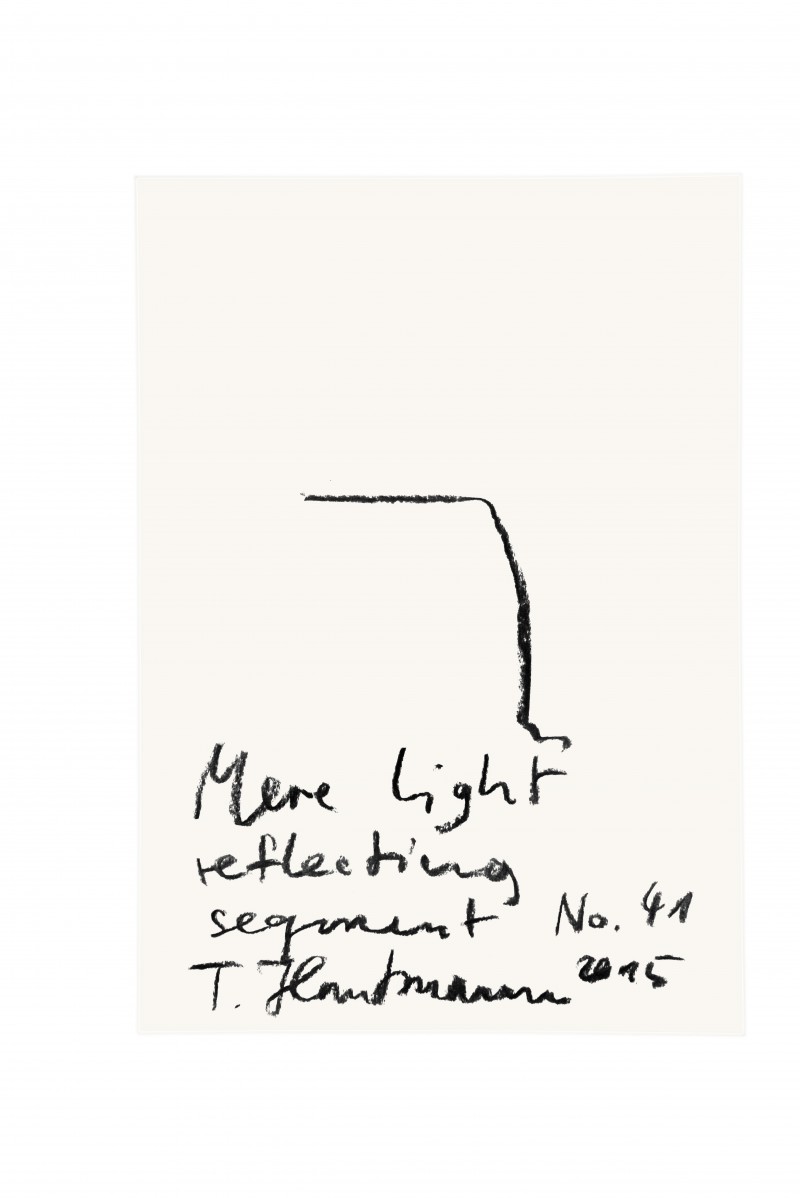 Mere light
reflecting
segment No. 41
T. 2015